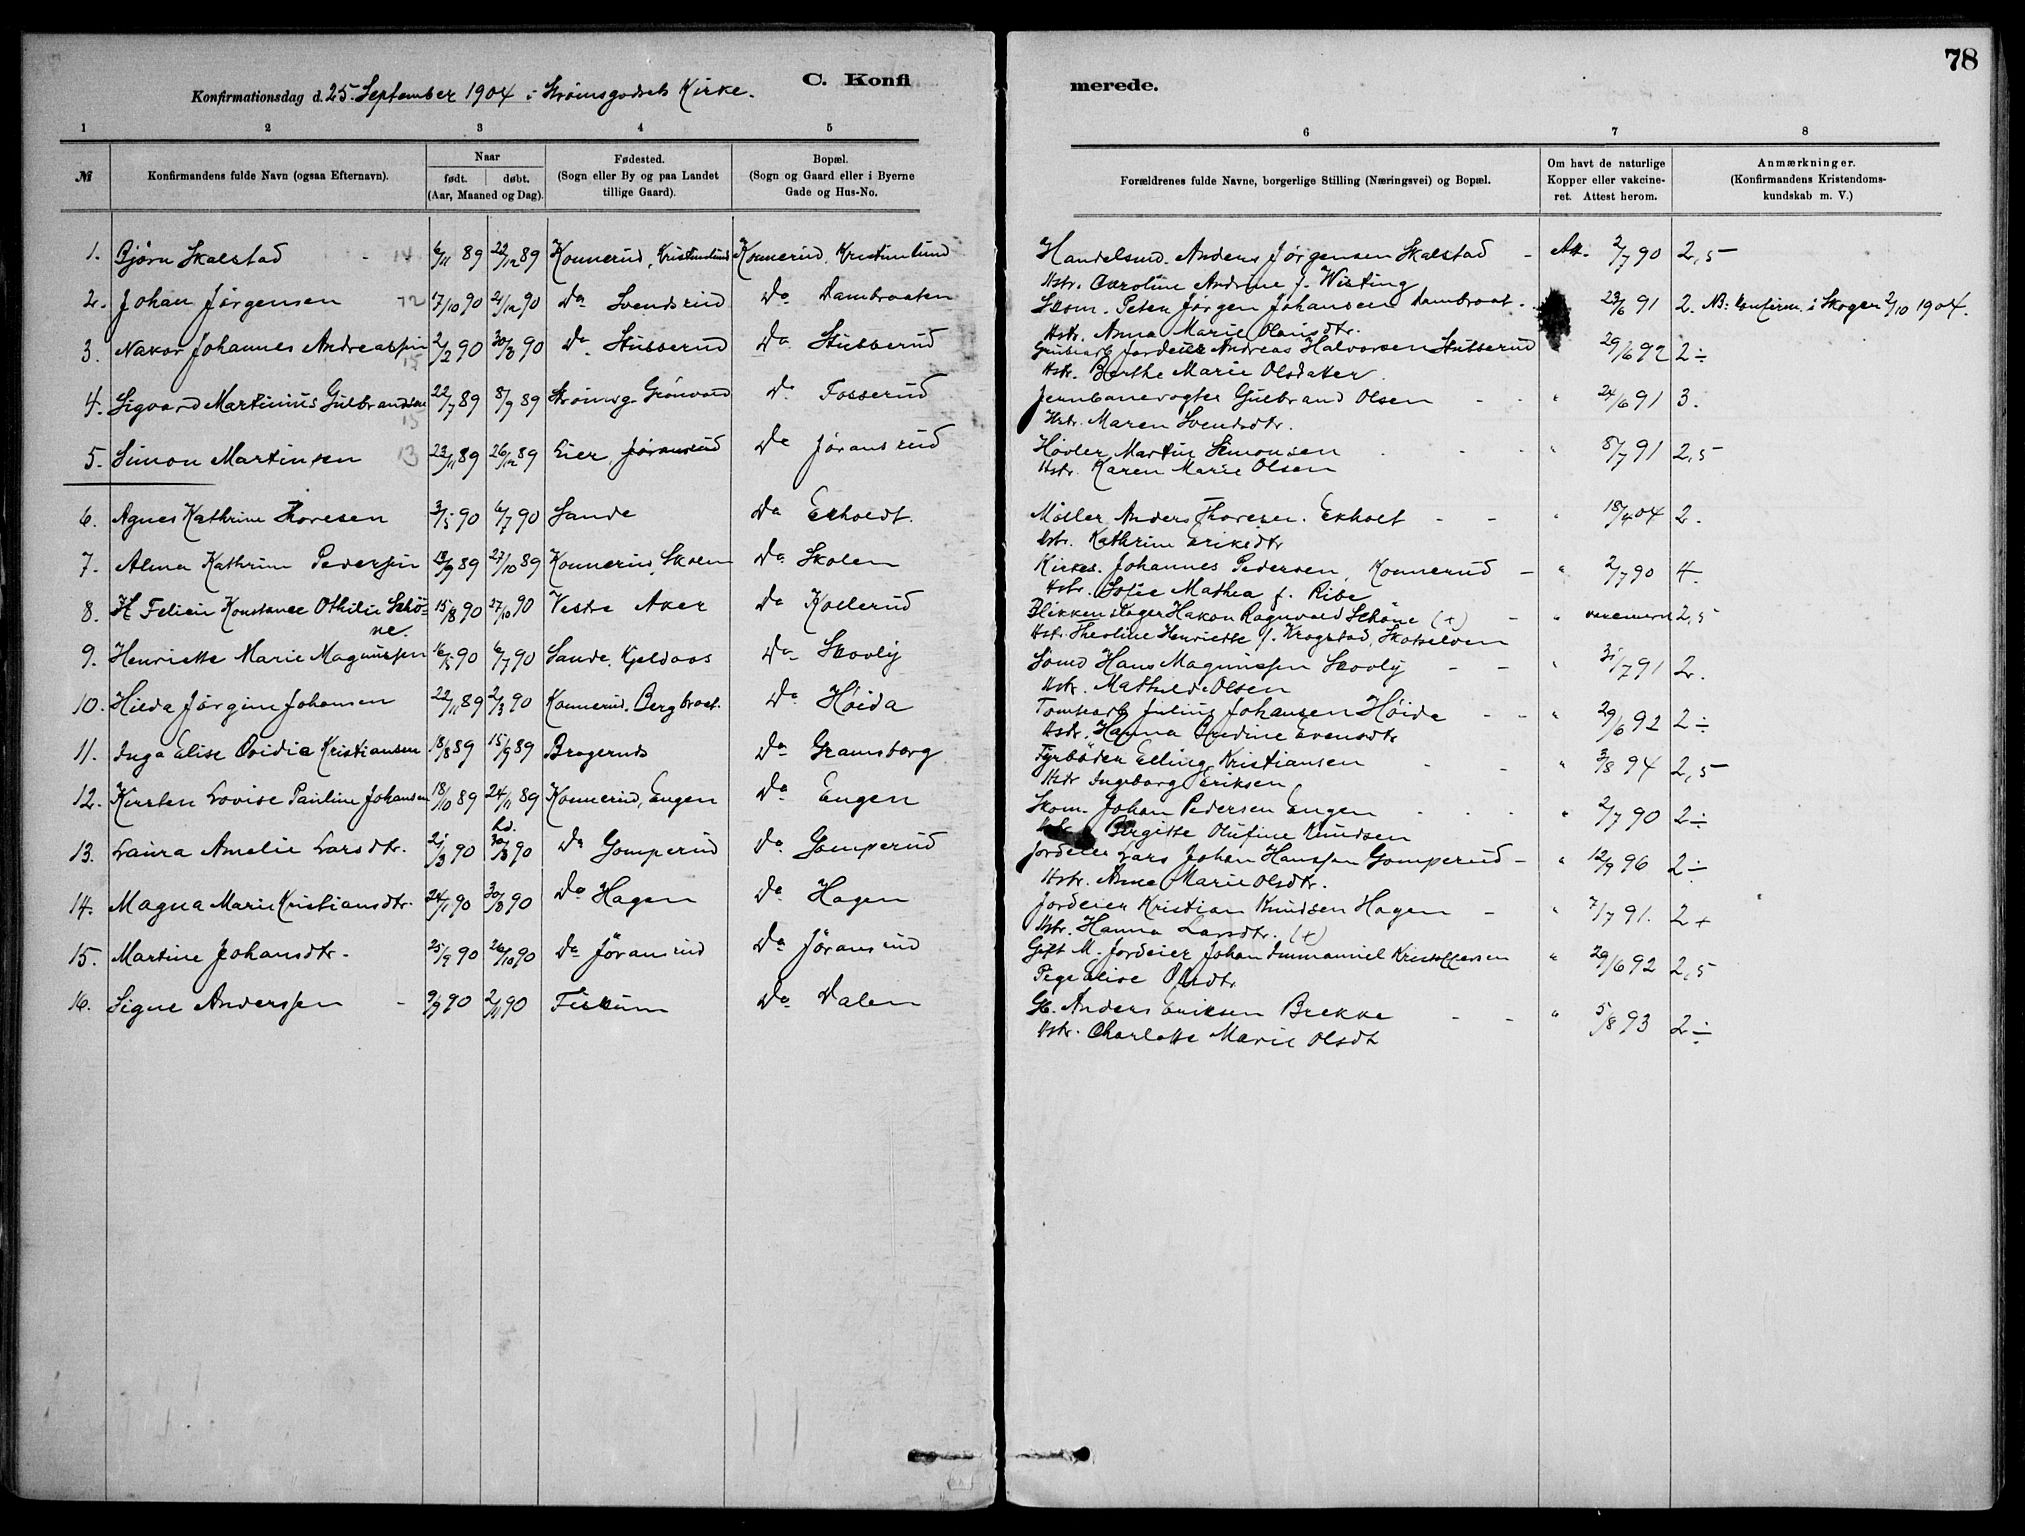 78
C. Konfi
merede.
Konfirmationsdag d. 25. September 1904 i Strømsgodsets Kirke.
1 2 3 4 5 6 7 8
№
Konfirmandens fulde Navn (ogsaa Efternavn).
Naar
født. døbt.
(Aar, Maaned og Dag).
Fødested.
(Sogn eller By og paa Landet
tillige Gaard).
Bopæl.
(Sogn og Gaard eller i Byerne
Gade og Hus-No.
Forældrenes fulde Navne, borgerlige Stilling (Næringsvei) og Bopæl.
Om havt de naturlige
Kopper eller vakcine-
ret. Attest herom.
Anmærkninger.
(Konfirmandens Kristendoms-
kundskab m. V.)
1. Bjørn Skalstad 14 6/11 89 22/12 89 Konnerud, Kristinlund Konnerud, Kristinlund Handelsmd. Anders Jørgensen Skalstad - Att. 2/7 90 2,5
Hstr. Caroline Andrine f. Wisting
2. Johan Jørgensen 12 17/10 90 21/12 90 Do Svendsrud Do Dambraaten Skom. Peter Jørgen Johansen Dambraat. 23/6 91 2. NB: konfirm. i Skoger 2/10 1904.
Hstr. Anna Marie Olausdtr.
3. Nakor Johannes Andreassen 15 2/2 90 30/3 90 Do Stubberud Do Stubberud Grubearb Jordeier Andreas Halvorsen Stubberud 29/6 92 2 ÷
Hstr. Berthe Marie Olsdatter.
4. Sigvard Martinius Gulbrandsen 15 22/7 89 8/9 89 Strømsg. Grønvold Do Fosserud Jernbanevogter Gulbrand Olsen - - " 24/6 91 3.
Hstr. Maren Svendsdtr.
5. Simon Martinsen 13 23/11 89 26/12 89 Eier, Jøransrud Do Jøransrud Høvler Martin Simonsen " 8/7 91 2,5
Hstr. Karen Marie Olsen
6. Agnes Kathrine Thoresen 3/5 90 6/7 90 Sande Do Ekholdt. Møller Anders Thoresen. Ekholt - - " 18/4 04 2.
Hstr. Kathrine Eriksdtr
7. Alma Kathrine Pedersen 13/9 89 27/10 89 Konnerud, Skolen Do Skolen Kirkes. Johannes Pedersen, Konnerud - " 2/7 90 4.
Hstr. Sofie Mathea f. Ribe
8. H Felicia Konstance Othilie Schø- 15/8 90 27/10 90 Vestre Aker Do Kollerud Blikkenslager Hakon Ragnvald Schöne (+) - " 2,5
ne. Hstr. Thealine Henriette f. Krogstad, Skotselven
9. Henriette Marie Magnussen 16/5 90 6/7 90 Sande, Gjeldaas Do Skovly Sømd Hans Magnussen Skovly - - " 31/7 91 2.
Hstr. Mathilde Olsen
10. Hilda Jørgine Johansen 22/11 89 2/3 90 Konnerud. Bergbraat. Do Høida Tomtearb Julius Johansen Høida - - " 29/6 92 2 ÷
Hstr. Hanna Evensdtr
11. Inga Elise Ovidia Kristiansen 18/8 89 15/9 89 Bragernes Do Gramsborg Fyrbøder Elling Kristiansen - - " 3/8 94 2,5
Hstr Ingeborg Eriksen
12. Kirsten Lovise Pauline Johansen 18/10 89 24/11 89 Konnerud, Engen Do Engen Skom. Johan Pedersen Engen " 2/7 90 2 ÷
Hstr Birgitte Olufine Knudsen
13. Laura Amelie Larsdtr. 21/3 90 hd. 30/3 90 Do Gomperud Do Gomperud Jordeier Lars Johan Hanssen Gomperud - " 12/9 96 2 ÷
Hstr. Anne Marie Olsdtr.
14. Magna Marie Kristiansdtr. 24/1 90 30/3 90 Do Hagen Do Hagen Jordeier Kristian Knudsen Hagen - " 7/7 91. 2 +
Hstr. Hanna Larsdtr. (+)
15. Martine Johansdtr. 25/9 90 26/10 90 Do Jøransrud Do Jøransrud Gift M. Jordeier Johan Immanuel Kristoffersen " 29/6 92 2,5
Pige Elise Olsdtr
16. Signe Anderssen - 9/9 90 2/11 90 Fiskum Do Dalen Gb. Anders Eriksen Brekke - - " 5/8 93 2 ÷
Hstr. Charlotte Marie Olsdt